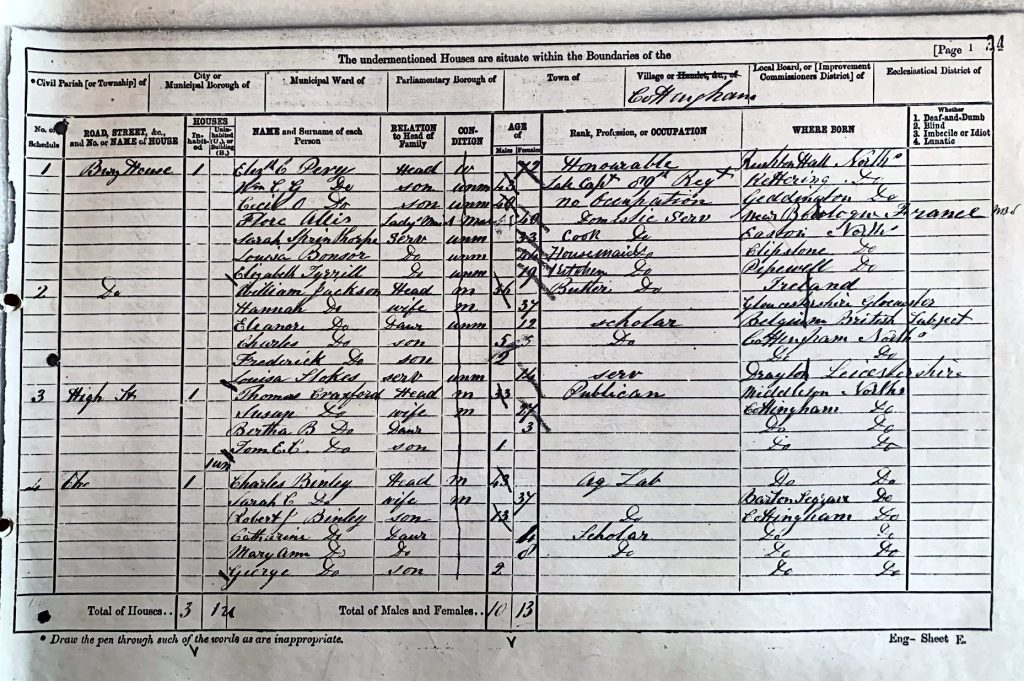 The undermentioned Houses are situate within the Boundaries of the [Page 1 24
* Civil Parish [or Township] of City or Municipal Borough of Municipal Ward of Parliamentary Borough of Town of Village or Hamlet, &c., of Local Board, or [Improvement Commissioners District] of Ecclesiastical District of
Cottingham
No. of Schedule ROAD, STREET, &c., and No. or NAME of HOUSE HOUSES Inhabited Uninhabited (U.), or Building (B.) NAME and Surname of each Person RELATION to Head of Family CONDITION AGE of Males Females Rank, Profession, or OCCUPATION WHERE BORN Whether 1. Deaf-and-Dumb 2. Blind 3. Imbecile or Idiot 4. Lunatic
1 Bury House 1 Elizth C Pery Head W 72 Honourable Rushton Hall North
Wm C G Do son unm 43 Late Capt Regt Kettering Do
Cecil O Do son unm 40 no Occupation Geddington Do
Flore Allis Lady's 40 Domestic Serv near Boulogne France
Sarah Sprinthorpe Serv unm Cook Do Easton North
Louisa Bonsor Do unm Housemaid Do Clipstone Do
Elizabeth Tyrrill Do unm 19 Kitchen Do Pipewell Do
2 Do William Jackson Head m 36 Butler Do Ireland
Hannah Do wife m 37 Gloucestershire Gloucester
Eleanor Do Daur unm 12 scholar Belgium British Subject
Charles Do son 5 Do Cottingham North
Frederick Do son 2 Do Do
Louisa Stokes serv unm 14 serv Drayton Leicestershire
3 High St 1 Thomas Craxford Head m 33 Publican Middleton North
Susan Do wife m 27 Cottingham Do
Bertha B Do Daur 3 Do Do
Tom E.C. Do son 1 Do Do
1 un
4 Do 1 Charles Binley Head m 43 Ag Lab Do Do
Sarah C Do wife m 37 Barton Seagrave Do
Robert J Binley son 13 Do Cottingham Do
Catherine Do Daur Scholar Do Do
Mary Ann Do Do 8 Do Do Do
George Do son 2 Do Do
Total of Houses.. 3 1u Total of Males and Females.. 10 13
* Draw the pen through such of the words as are inappropriate. Eng- Sheet E.